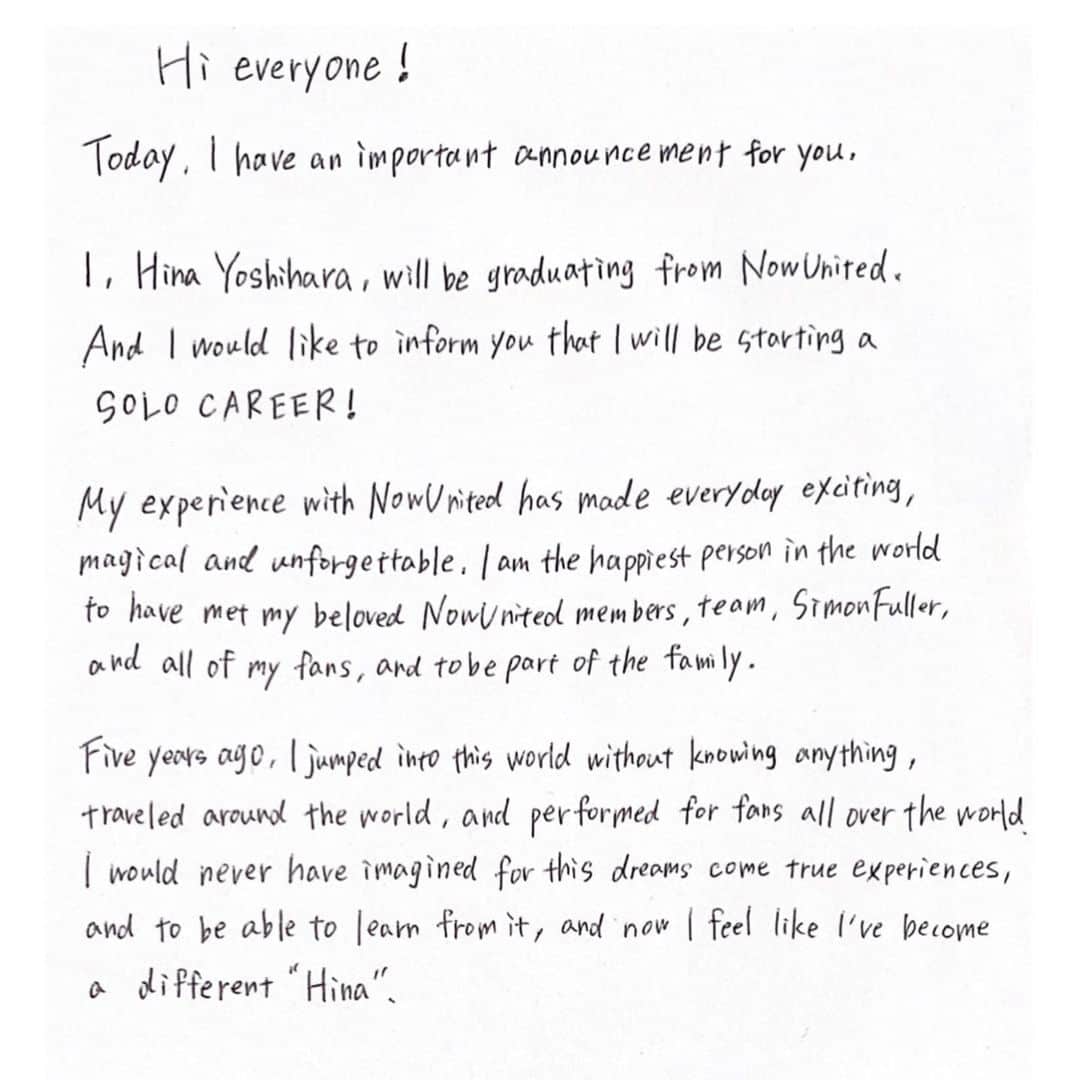 Hi everyone!
Today, I have an important announcement for you.
I, Hina Yoshihara, will be graduating from NowUnited.
And I would like to inform you that I will be starting a
SOLO CAREER!
My experience with NowUnited has made everyday exciting,
magical and unforgettable. I am the happiest person in the world
to have met my beloved NowUnited members, team, SimonFuller,
and all of my fans, and to be part of the family.
Five years ago, I jumped into this world without knowing anything,
traveled around the world, and performed for fans all over the world.
I would never have imagined for this dreams come true experiences,
and to be able to learn from it, and now I feel like I've become
a different "Hina".